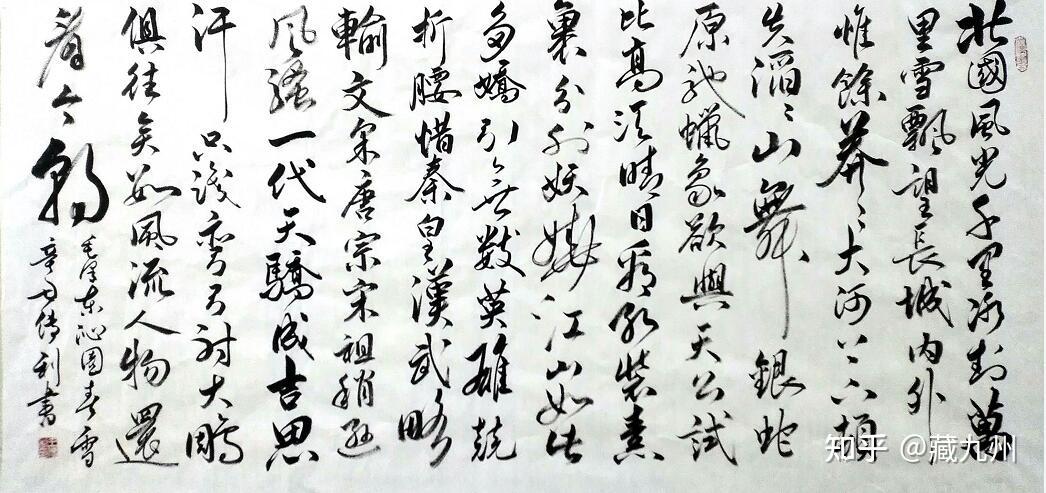 北國風光千里冰封萬
里雪飄望長城内外
惟餘莽〻大河上下頓
失滔〻山舞銀蛇
原馳蠟象欲與天公試
比高須晴日看紅裝素
裹分外妖嬈江山如此
多嬌引無數英雄競
折腰惜秦皇漢武略
輸文采唐宗宋祖稍遜
風騷一代天驕成吉思
汗只識彎弓射大鵰
俱往矣數風流人物還
看今朝
毛澤東沁園春雪
傳利書
知乎 @藏九州